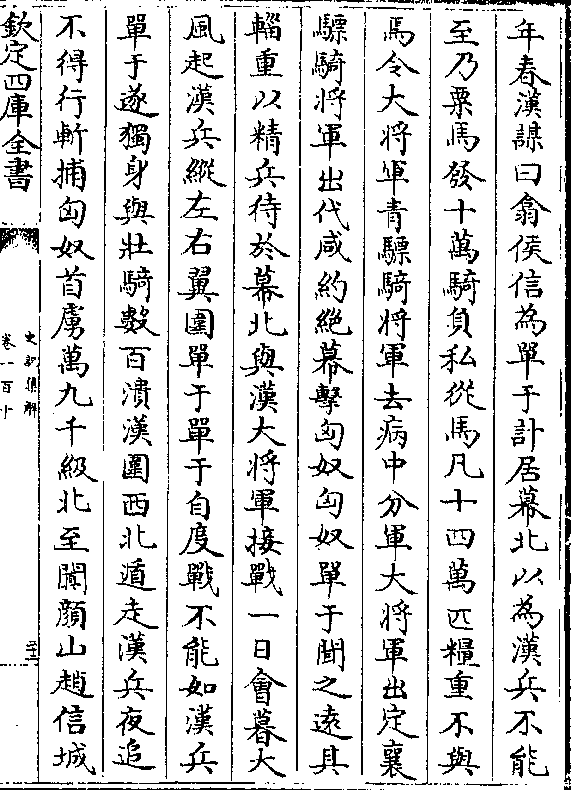 年春漢謀曰翕侯信為單于計居幕北以為漢兵不能
至乃粟馬發十萬騎負私從馬凡十四萬匹糧重不與
焉令大將軍青驃騎將軍去病中分軍大將軍出定襄
驃騎將軍出代咸約絶幕擊匈奴匈奴單于聞之逺其
輜重以精兵待於幕北與漢大將軍接戰一日會暮大
風起漢兵縱左右翼圍單于單于自度戰不能如漢兵
單于遂獨身與壯騎數百潰漢圍西北遁走漢兵夜追
不得行斬捕匈奴首虜萬九千級北至闐顔山趙信城
欽定四庫全書
史記集解
卷一百十